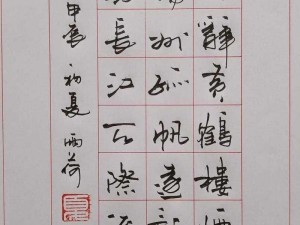 辭黃鶴樓
州孤帆遠影
長江天際流
甲辰初夏雨荷